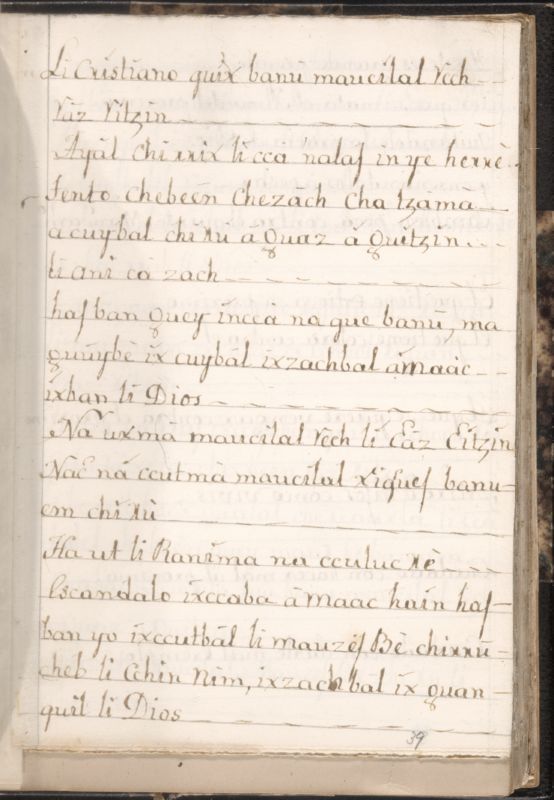 Li Cristiano quix banu maucilal rech
raz ritzin
Ayal chi xxix li cca nalas in ye herre-
sento chebeen chezach cha tzama
a cuybal chi xu a guaz a guitzin
li ani ca zach
has ban quey incca na que banu, ma
quuybè ix cuybal ixzachbal a maac
ixban li Dios
Na uxmà maucilal rech li Eaz Eitzin
NaE na ccutmà maucilal xiques banu-
em chi xu
Ha ut li Ranima na cculuc xè
Escandalo ixccaba a maac hain has-
ban yo ixccutbal li mauzes Bè chixxu-
cheb li Cchin Nim, ixzachbal ix guan
quil li Dios
39